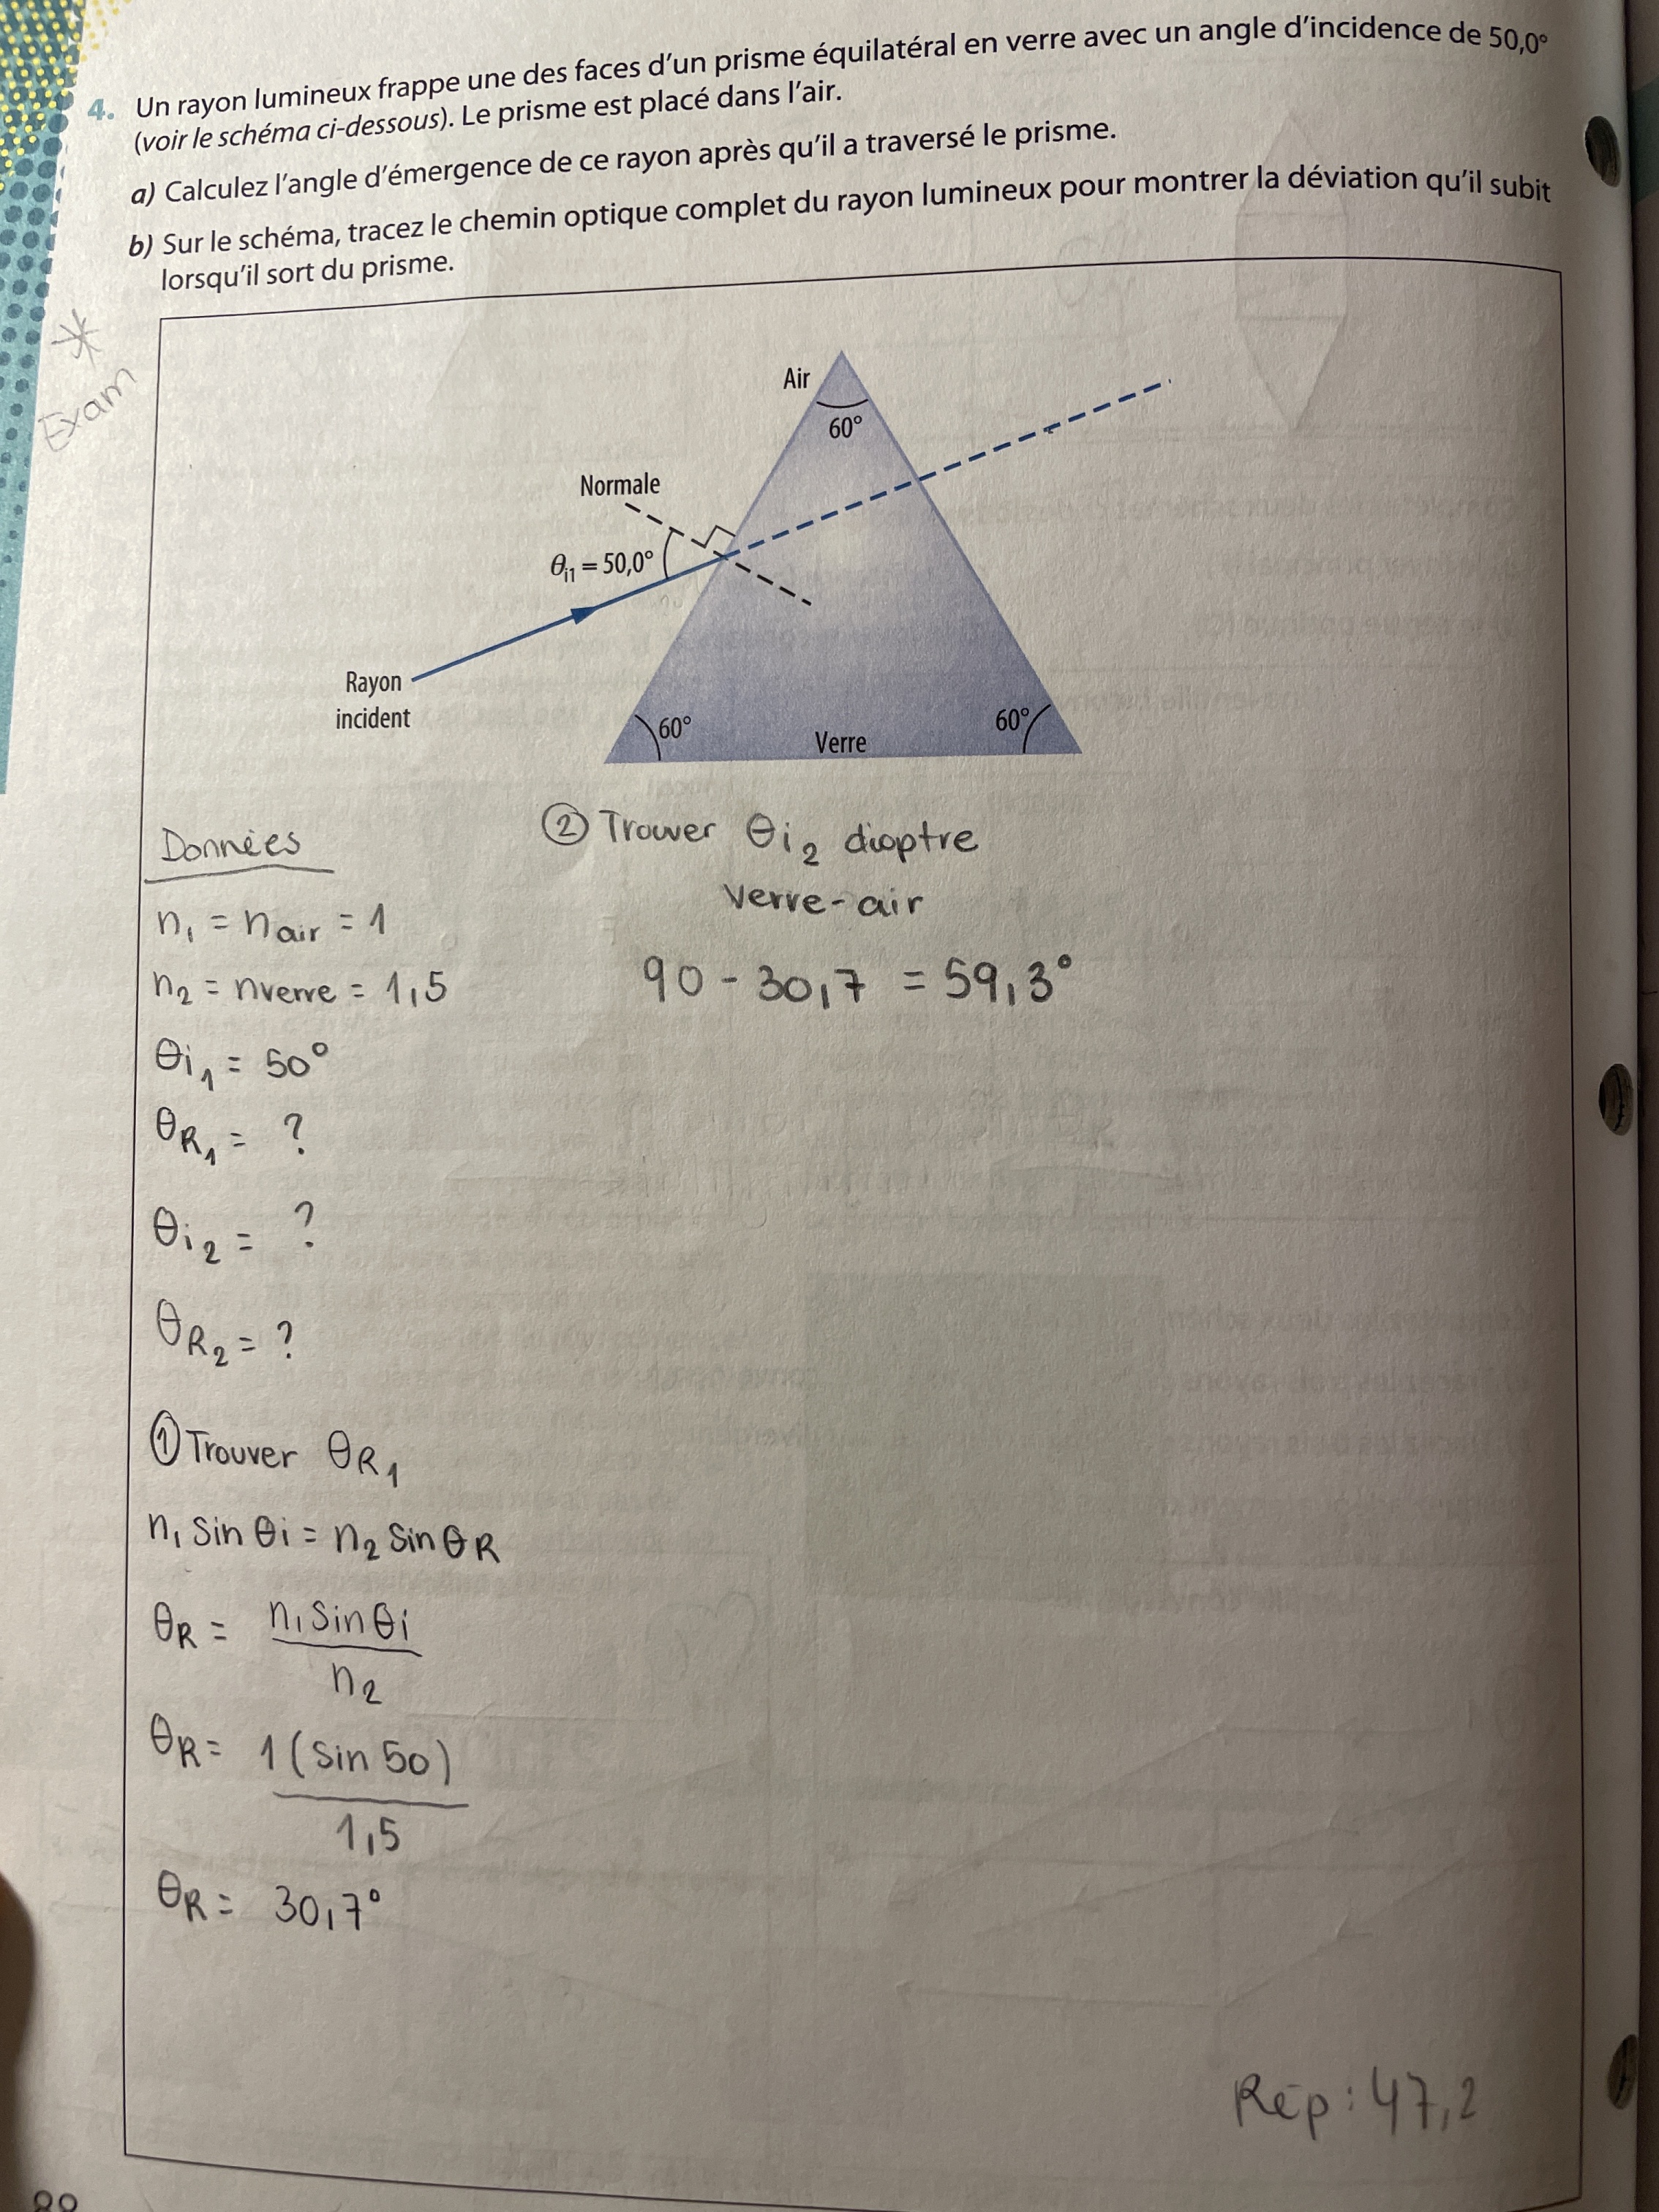 4. Un rayon lumineux frappe une des faces d'un prisme équilatéral en verre avec un angle d'incidence de 50,0°
(voir le schéma ci-dessous). Le prisme est placé dans l'air.
a) Calculez l'angle d'émergence de ce rayon après qu'il a traversé le prisme.
b) Sur le schéma, tracez le chemin optique complet du rayon lumineux pour montrer la déviation qu'il subit
lorsqu'il sort du prisme.
* Exam
Air
60°
Normale
θi1 = 50,0°
Rayon
incident
60°
Verre
60°
Données
n₁ = n air = 1
n₂ = nverre = 1,5
θi₁ = 50°
θR₁ = ?
θi₂ = ?
θR₂ = ?
① Trouver θR₁
n₁ sin θi = n₂ sin θR
θR = n₁ sin θi
n₂
θR = 1 (sin 50)
1,5
θR = 30,7°
② Trouver θi₂ dioptre
verre-air
90 - 30,7 = 59,3°
Rép : 47,2